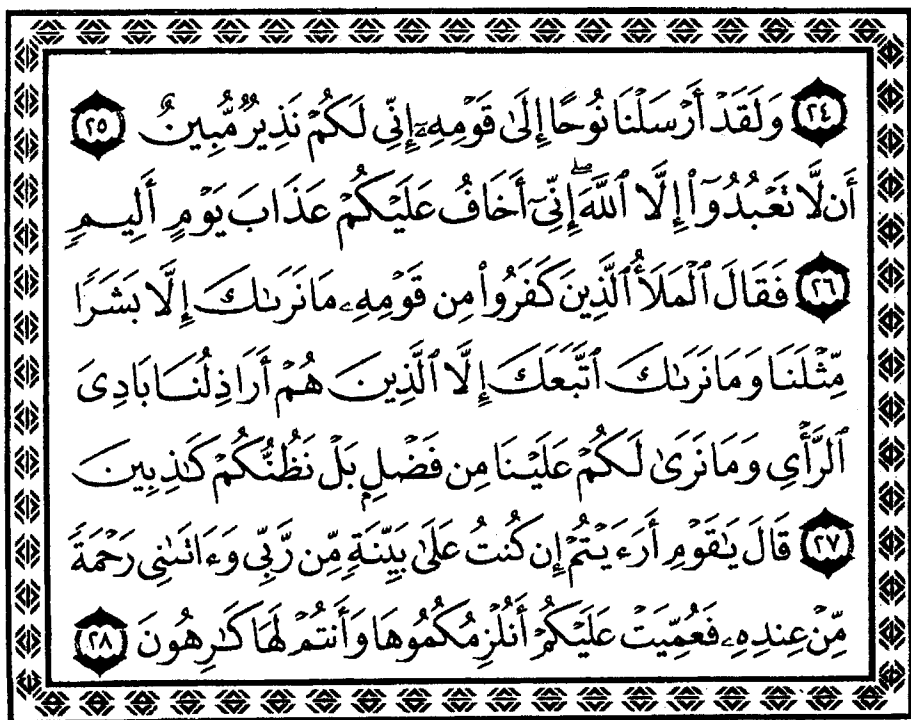 ﴿٢٤﴾ وَلَقَدْ أَرْسَلْنَا نُوحًا إِلَىٰ قَوْمِهِۦٓ إِنِّى لَكُمْ نَذِيرٌ مُّبِينٌ ﴿٢٥﴾
أَن لَّا تَعْبُدُوٓا۟ إِلَّا ٱللَّهَ ۖ إِنِّىٓ أَخَافُ عَلَيْكُمْ عَذَابَ يَوْمٍ أَلِيمٍ
﴿٢٦﴾ فَقَالَ ٱلْمَلَأُ ٱلَّذِينَ كَفَرُوا۟ مِن قَوْمِهِۦ مَا نَرَىٰكَ إِلَّا بَشَرًا
مِّثْلَنَا وَمَا نَرَىٰكَ ٱتَّبَعَكَ إِلَّا ٱلَّذِينَ هُمْ أَرَاذِلُنَا بَادِىَ
ٱلرَّأْىِ وَمَا نَرَىٰ لَكُمْ عَلَيْنَا مِن فَضْلٍۭ بَلْ نَظُنُّكُمْ كَٰذِبِينَ
﴿٢٧﴾ قَالَ يَٰقَوْمِ أَرَءَيْتُمْ إِن كُنتُ عَلَىٰ بَيِّنَةٍ مِّن رَّبِّى وَءَاتَىٰنِى رَحْمَةً
مِّنْ عِندِهِۦ فَعُمِّيَتْ عَلَيْكُمْ أَنُلْزِمُكُمُوهَا وَأَنتُمْ لَهَا كَٰرِهُونَ ﴿٢٨﴾